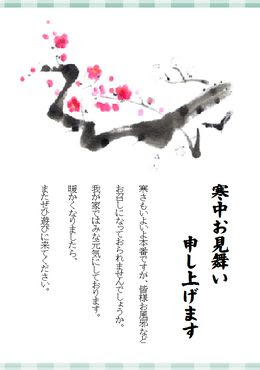 寒中お見舞い
申し上げます
寒さもいよいよ本番ですが、皆様お風邪など
お召しになっておられませんでしょうか。
我が家ではみな元気にしております。
暖かくなりましたら、
またぜひ遊びに来てください。